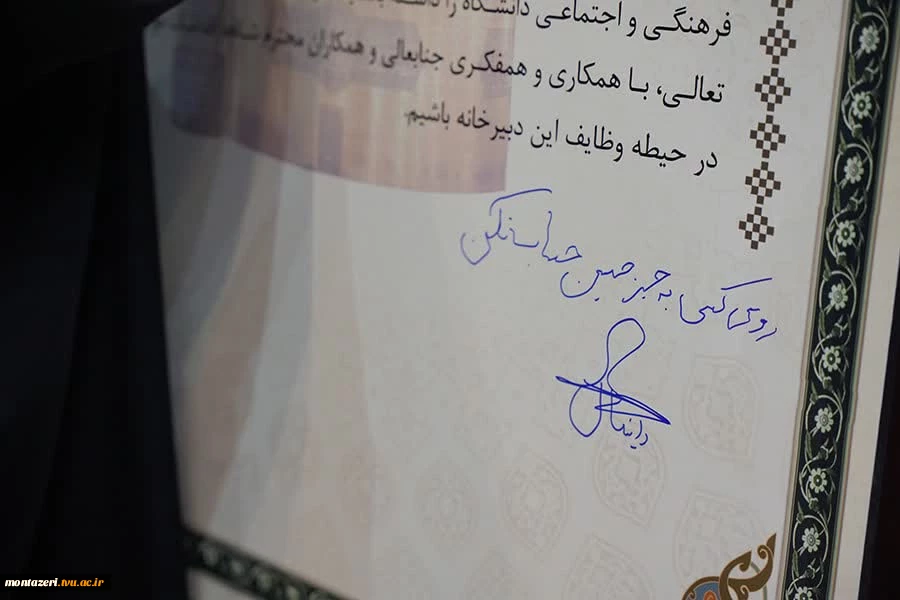 فرهنگی و اجتماعی دانشگاه را
تعالی، با همکاری و همفکری جنابعالی و همکاران محترم
در حیطه وظایف این دبیرخانه باشیم.
روی کسی به جز حسین حساب نکن
دانیال
montazeri.tvu.ac.ir